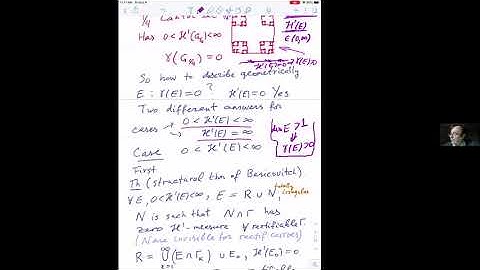 1/4 Cantor
Has 0 < H¹(G_{1/4}) < ∞
H¹(E)
∈ (0,∞)
γ(G_{1/4}) = 0
γ(E)>0
So how to describe geometrically
E : γ(E)=0 ? H¹(E)=0 Yes
Two different answers for
cases 0 < H¹(E) < ∞
H¹(E) = ∞
dim E > 1
γ(E)>0
Case 0 < H¹(E) < ∞
First
Th (structural thm of Besicovitch)
∀E, 0<H¹(E)<∞, E = R ∪ N, totally irregular
N is such that N∩Γ has
zero H¹-measure ∀ rectifiable Γ.
(N are invisible for rectif curves)
R = ∪ (E∩Γ_k) ∪ E₀, H¹(E₀)=0